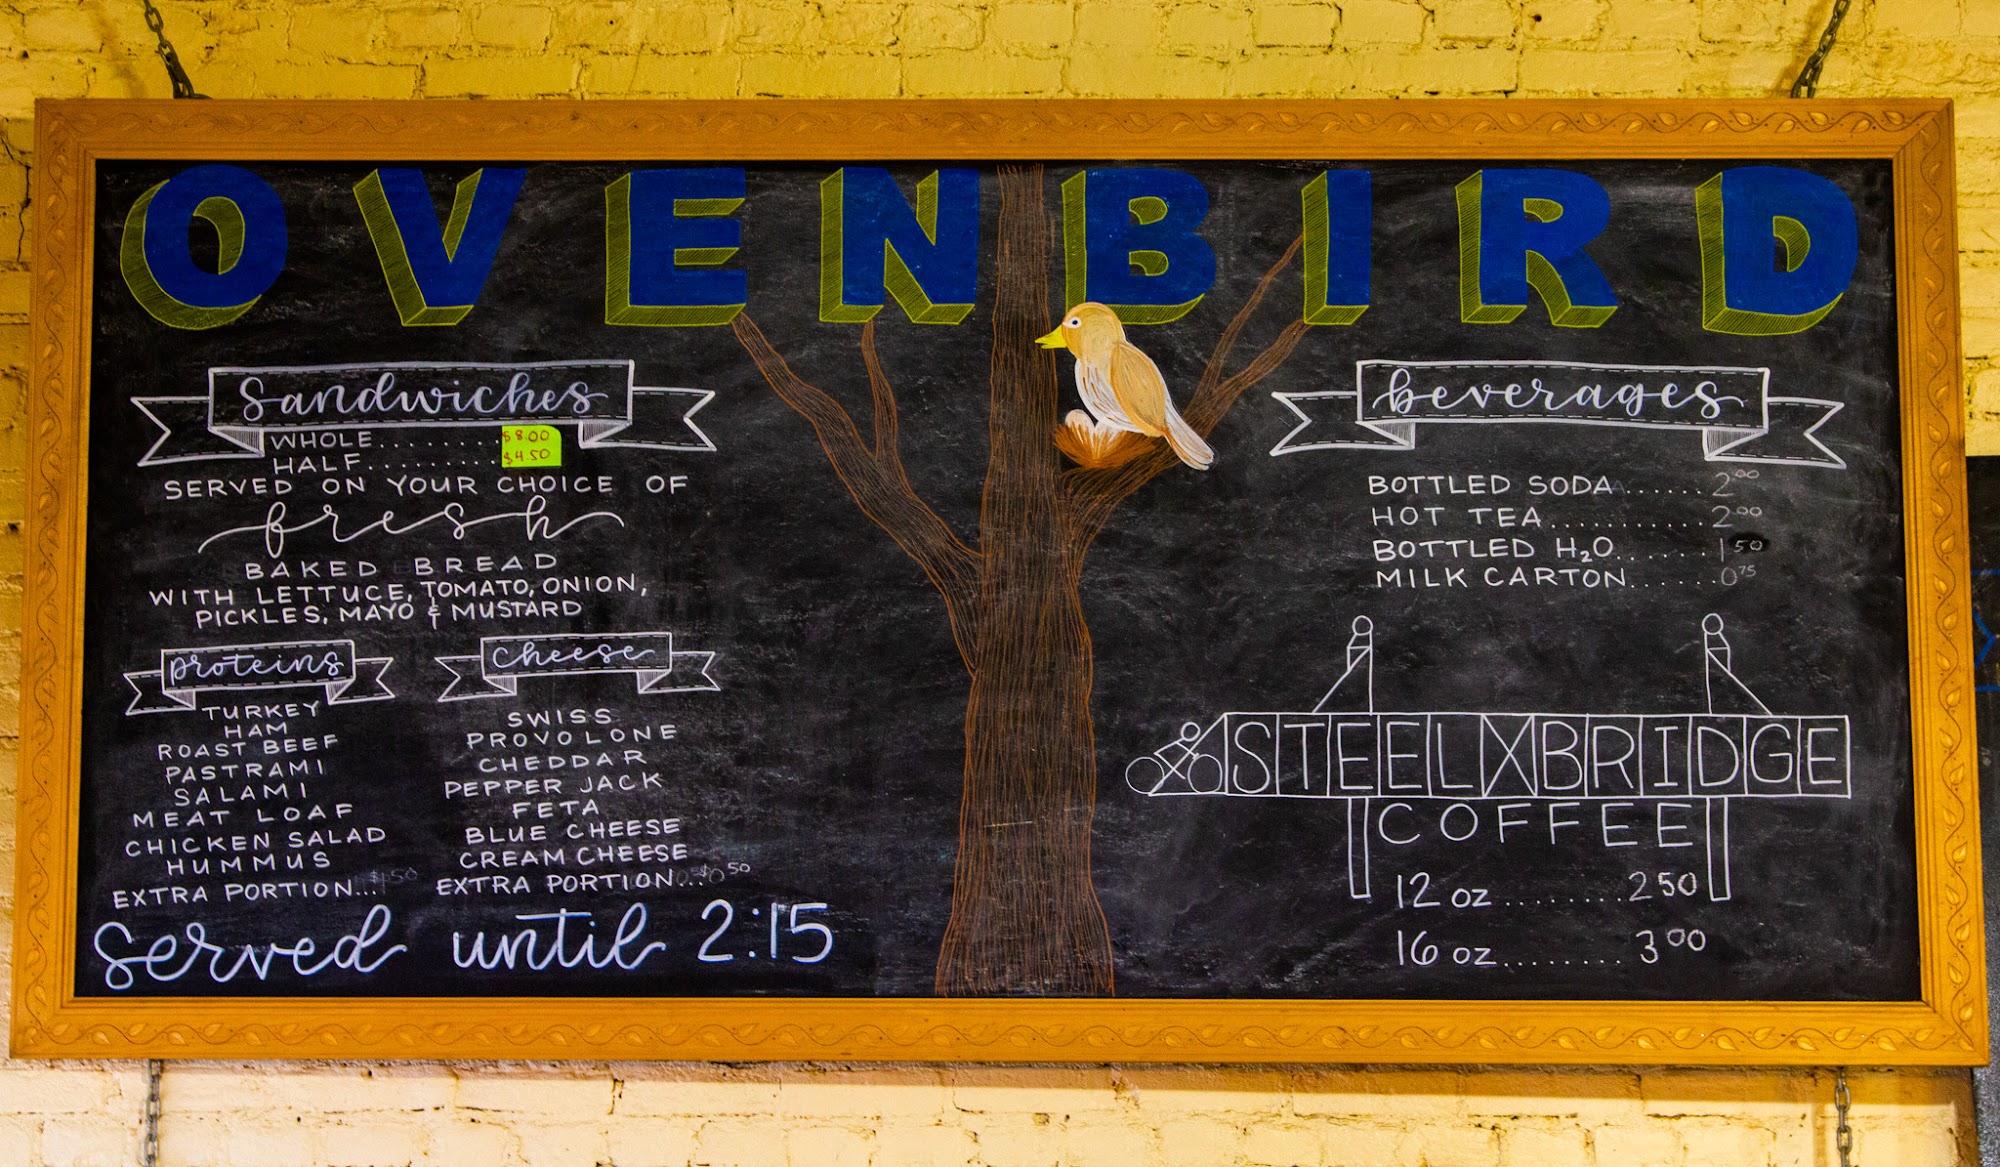 OVENBIRD
Sandwiches
WHOLE........$8.00
HALF.........$4.50
SERVED ON YOUR CHOICE OF
fresh
BAKED BREAD
WITH LETTUCE, TOMATO, ONION,
PICKLES, MAYO & MUSTARD
proteins
TURKEY
HAM
ROAST BEEF
PASTRAMI
SALAMI
MEAT LOAF
CHICKEN SALAD
HUMMUS
EXTRA PORTION...$1 50
cheese
SWISS
PROVOLONE
CHEDDAR
PEPPER JACK
FETA
BLUE CHEESE
CREAM CHEESE
EXTRA PORTION...$0.50
served until 2:15
beverages
BOTTLED SODA......2 00
HOT TEA...........2 00
BOTTLED H₂O......1 50
MILK CARTON......0 75
STEELXBRIDGE
COFFEE
12 oz.........2 50
16 oz........3 00